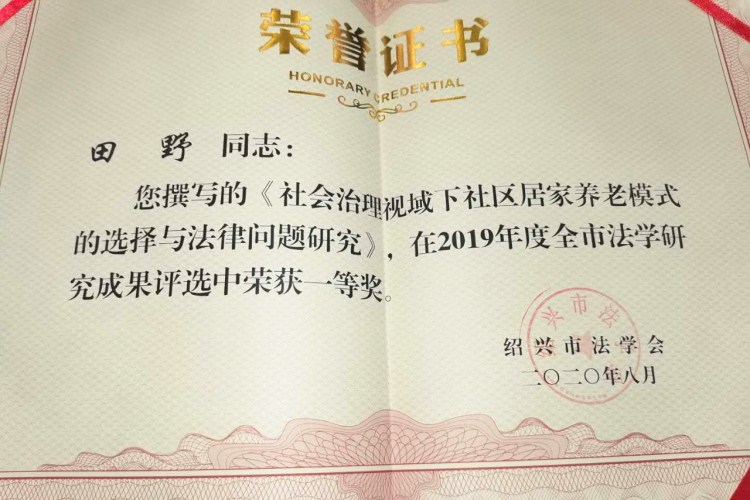 荣誉证书
HONORARY CREDENTIAL
田 野 同志：
您撰写的《社会治理视域下社区居家养老模式
的选择与法律问题研究》，在2019年度全市法学研
究成果评选中荣获一等奖。
绍兴市法学会
二〇二〇年八月
兴市法